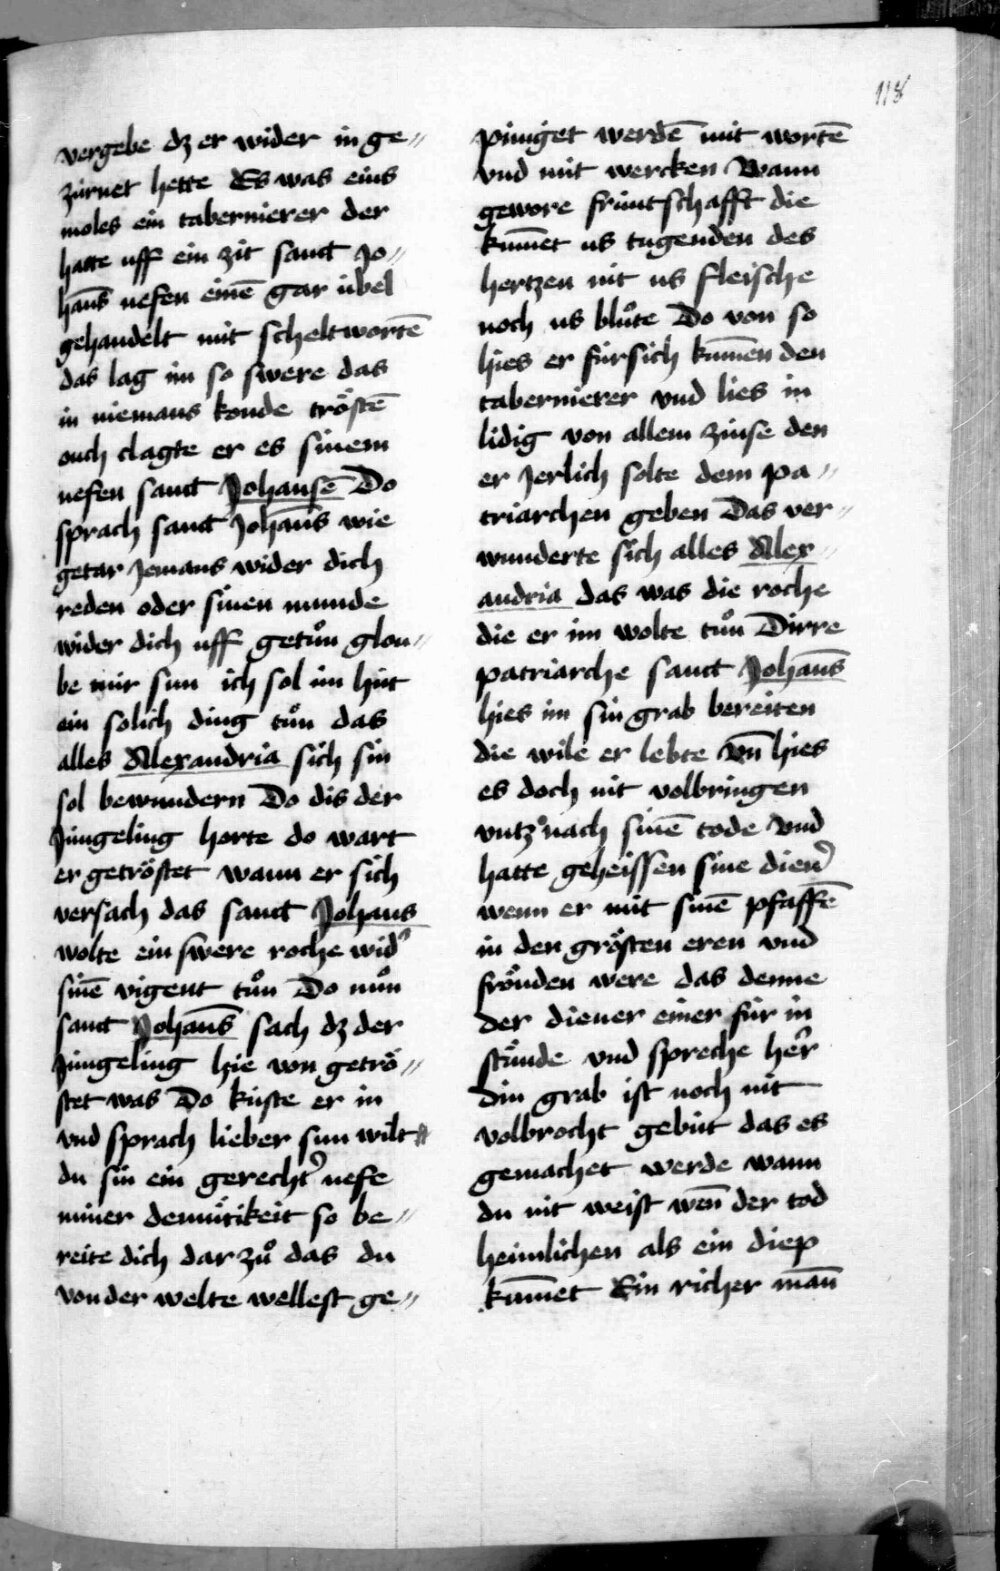 118
vergebe dz er wider in ge〃
zúrnet hette Es was eins
moles ein tabernierer der
hatte uff ein zit sanct Jo〃
hañs nefen einē gar úbel
gehandelt mit scheltwortē
das lag im so swere das
in niemans konde tröstē
ouch clagte er es sinem
nefen sanct Johansē Do
sprach sanct Johañs wie
getar Jemans wider dich
reden oder sinen munde
wider dich uff getůn glou〃
be mir sun ich sol im hút
ein solich ding tůn das
alles Alexandria sich sin
sol bewundern Do dis der
Júngeling horte do wart
er getröstet wann er sich
versach das sanct Johans
wolte ein swere roche wid᾽
sinē vigent tůn Do nůn
sanct Johañs sach dz der
Júngeling hie von getrö〃
stet was Do kúste er in
vnd sprach lieber sun wilt
du sin ein gerecht᾽ nefe
miner demútikeit so be〃
reite dich dar zů das du
von der welte wellest ge〃
piniget werdē mit wortē
vnd mit wercken Wann
gewore frúntschafft die
kum̄et us tugenden des
hertzen nit us fleische
noch us blůte Do von so
hies er fúrsich kum̄en den
tabernierer vnd lies in
lidig von allem zinse den
er Jerlich solte dem pa〃
triarchen geben Das ver〃
wunderte sich alles Alex〃
andria das was die roche
die er im wolte tůn Dirre
patriarche sanct Johañs
hies im sin grab bereiten
die wile er lebte vn̄ hies
es doch nit volbringen
vntz nach sinē tode Vnd
hatte geheissen sine dien᾽
wenn er mit sinē pfaffē
in den grösten eren vnd
fröuden were das denne
der diener einer fúr in
stůnde vnd spreche her᾽
din grab ist noch nit
volbrocht gebút das es
gemachet werde wann
du nit weist wen̄ der tod
heimlichen als ein diep
kum̄et Ein richer man̄